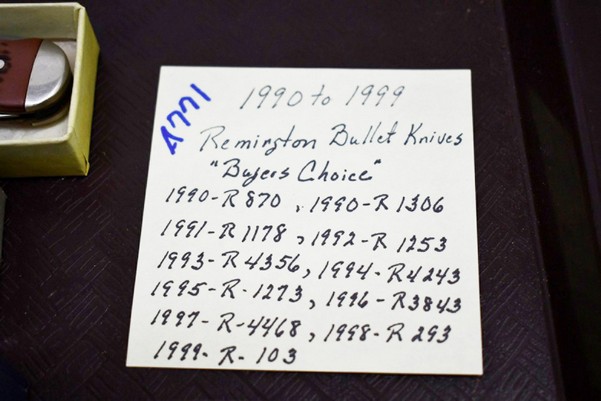 A771
1990 to 1999
Remington Bullet Knives
"Buyers Choice"
1990-R870, 1990-R1306
1991-R1178, 1992-R1253
1993-R4356, 1994-R4243
1995-R-1273, 1996-R3843
1997-R-4468, 1998-R293
1999-R-103